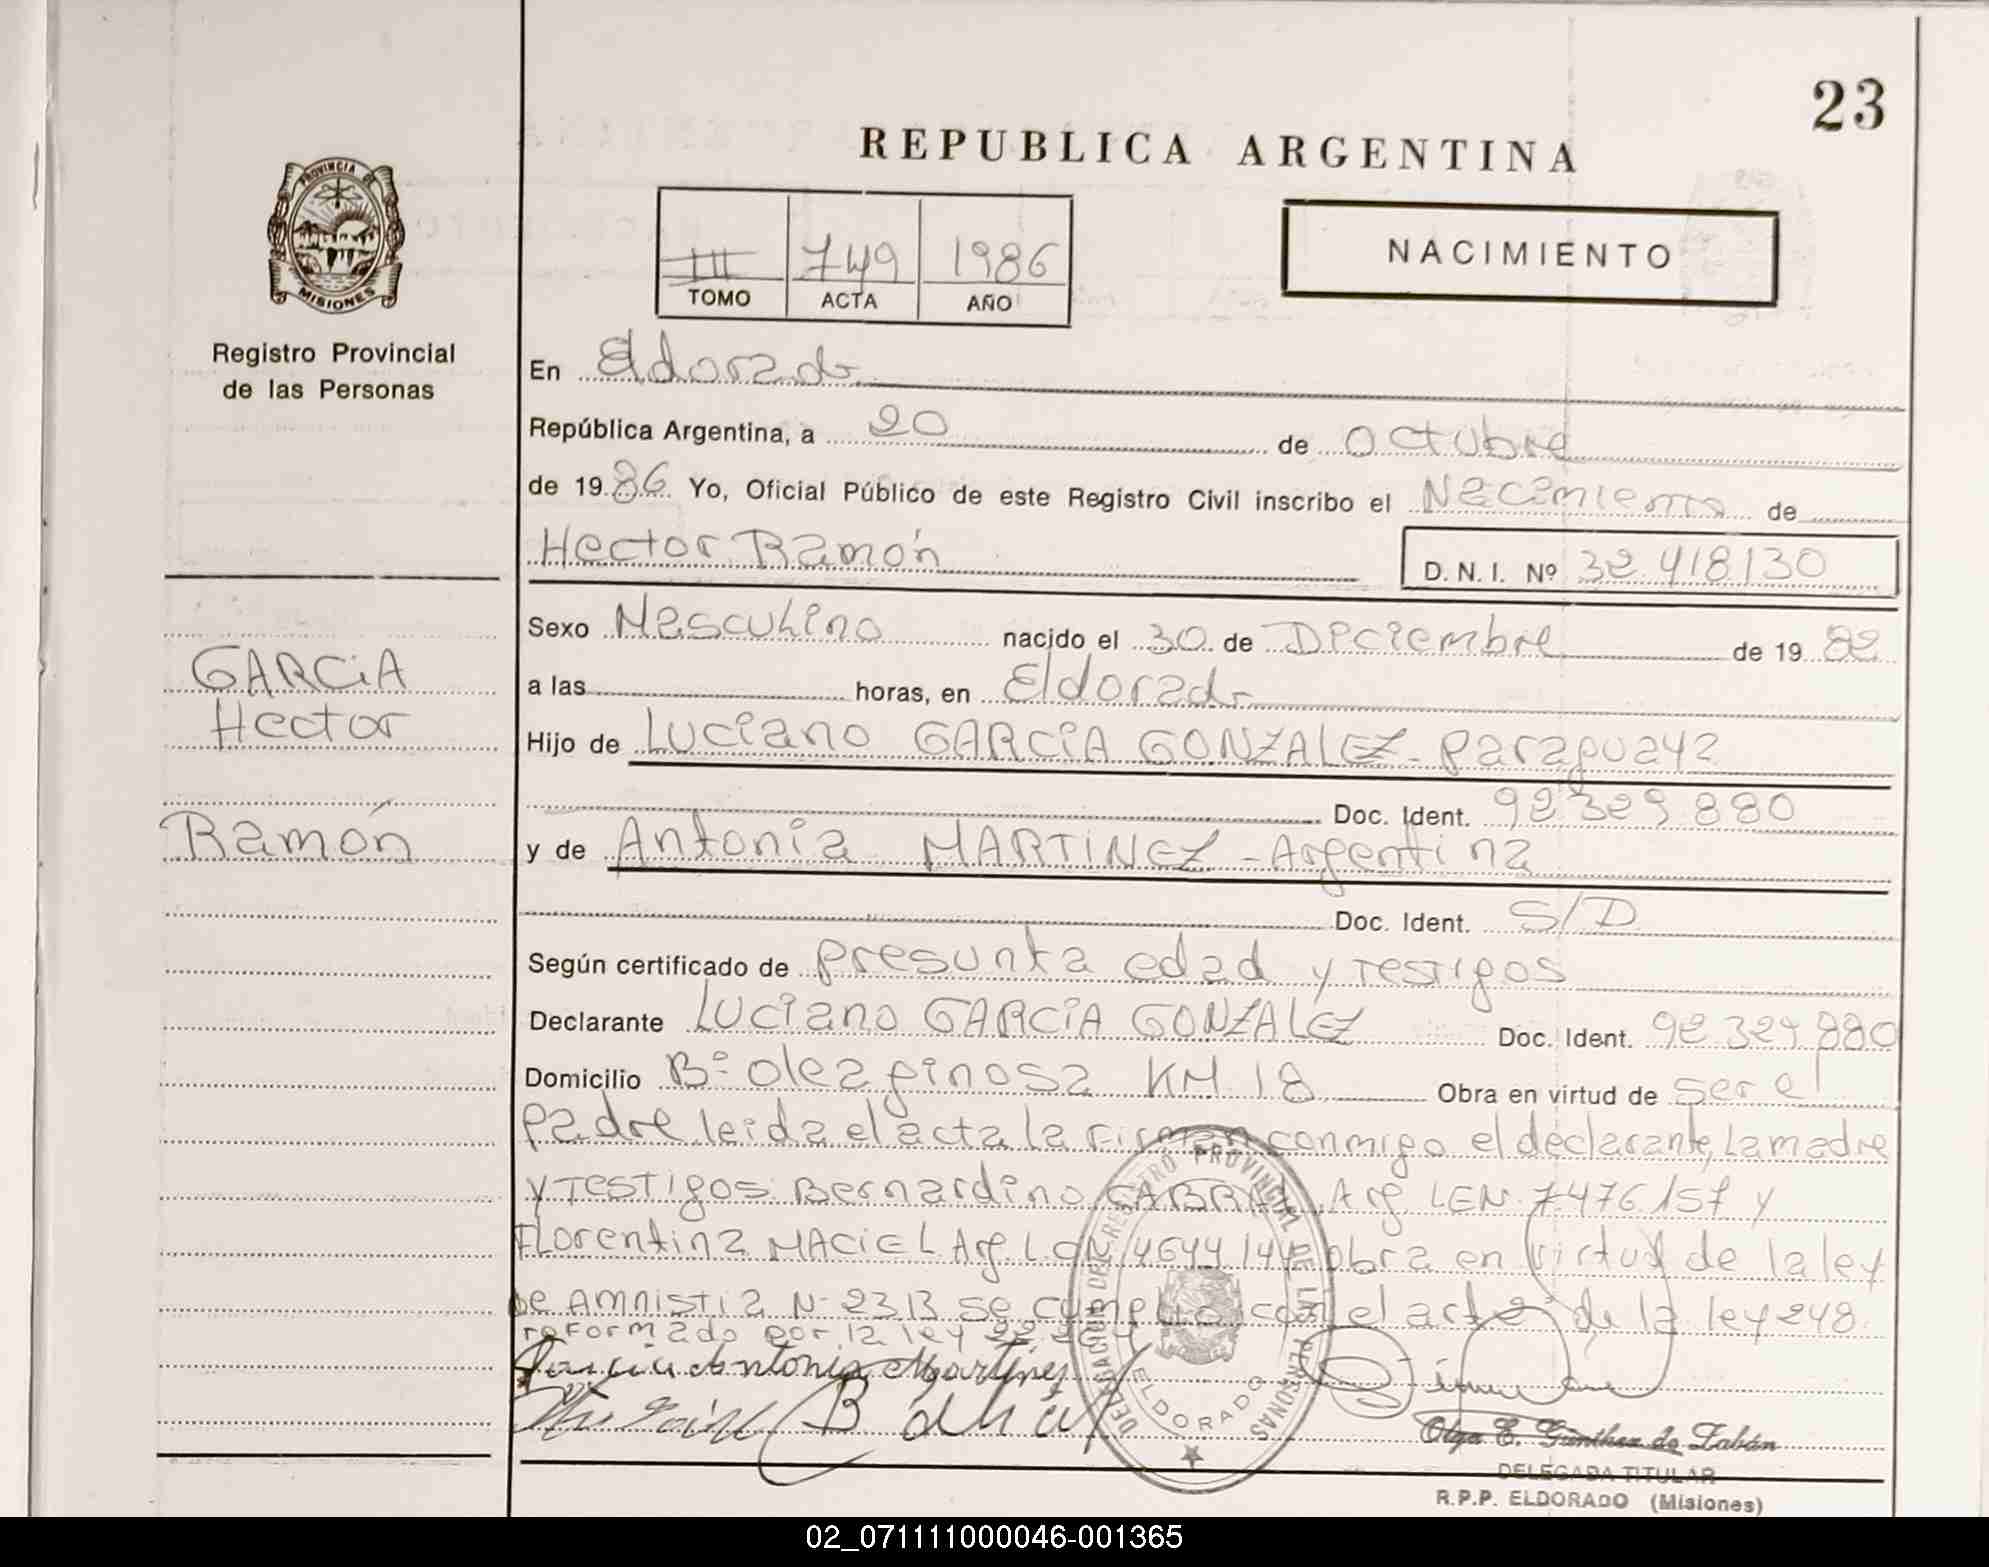 23
REPUBLICA ARGENTINA
PROVINCIA DE
MISIONES
Registro Provincial
de las Personas
III 749 1986
TOMO ACTA AÑO
NACIMIENTO
En Eldorado
República Argentina, a 20 de Octubre
de 1986 Yo, Oficial Público de este Registro Civil inscribo el Nacimiento de
Hector Ramón D.N.I. Nº 32.418.130
Sexo Masculino nacido el 30 de Diciembre de 1982
GARCiA
Hector
Ramón
a las horas, en Eldorado
Hijo de Luciano GARCIA GONZALEZ - Paraguaya
Doc. Ident. 92.329.880
y de Antonia MARTINEZ - Argentina
Doc. Ident. S/D
Según certificado de presunta edad y testigos
Declarante Luciano GARCIA GONZALEZ Doc. Ident. 92.329.880
Domicilio Bº Oleaginosa KM 18 Obra en virtud de ser el
padre leida el acta la firman conmigo el declarante, La madre
y testigos Bernardino CABRAL Arg. LEN 7.476.157 y
Florentina MACIEL Arg. LCN 4644144 obra en virtud de la ley
de Amnistia N- 2313 se cumplio con el art 2º de la ley 248
reformado por la ley
Garcia Antonia Martinez
DELEGACION DEL REGISTRO PROVINCIAL DE LAS PERSONAS
ELDORADO
Olga E. Günther de Zabán
DELEGADA TITULAR
R.P.P. ELDORADO (Misiones)
02_071111000046-001365